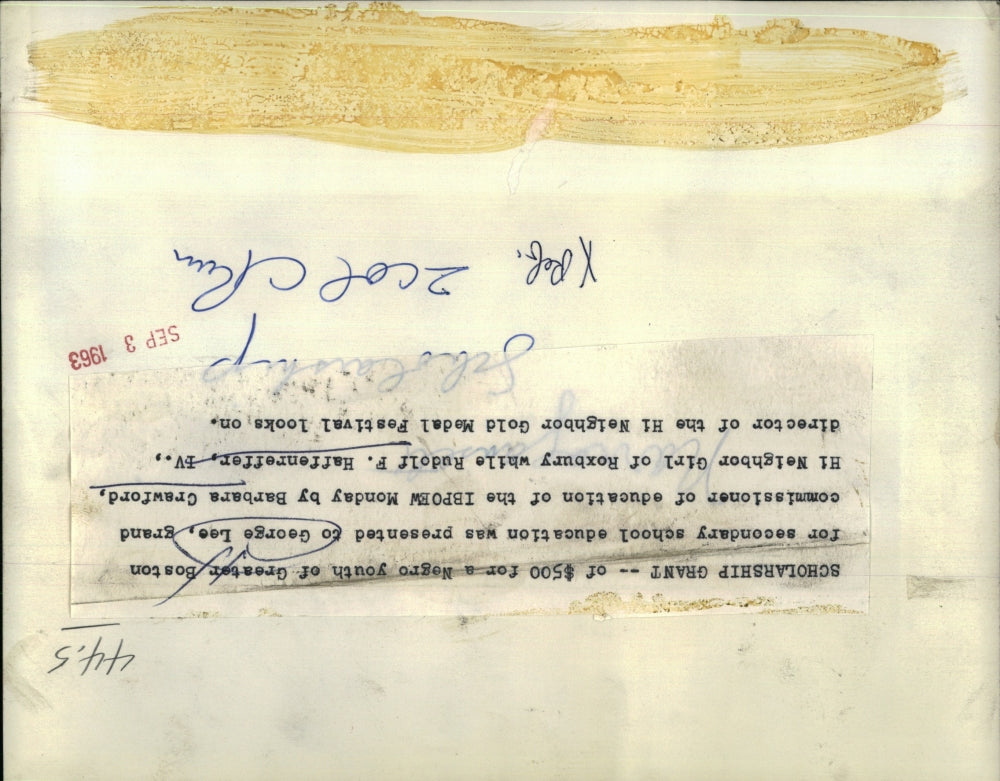 44.5
SCHOLARSHIP GRANT -- of $500 for a Negro youth of Greater Boston
for secondary school education was presented to George Lee, grand
commissioner of education of the IBPOEW Monday by Barbara Crawford,
Hi Neighbor Girl of Roxbury while Rudolf F. Haffenreffer, IV.,
director of the Hi Neighbor Gold Medal Festival looks on.
SEP 3 1963
Scholarship
2 col
X Ref.